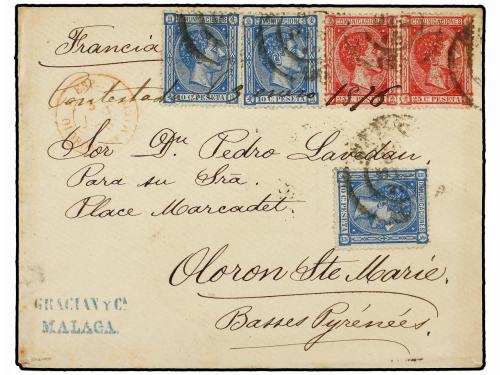 Francia
COMUNICACIONES COMUNICACIONES COMUNICACIONES COMUNICACIONES
10 C. PESETA 10 C. PESETA 25 C. PESETA 25 C. PESETA
Contestada 1876
Sor Dn Pedro Lavedan
Para su Sra
Place Marcadet
COMUNICACIONES
10 C. PESETA
Oloron Ste Marie.
Basses Pyrénées.
GRACIAN Y Ca
MALAGA.